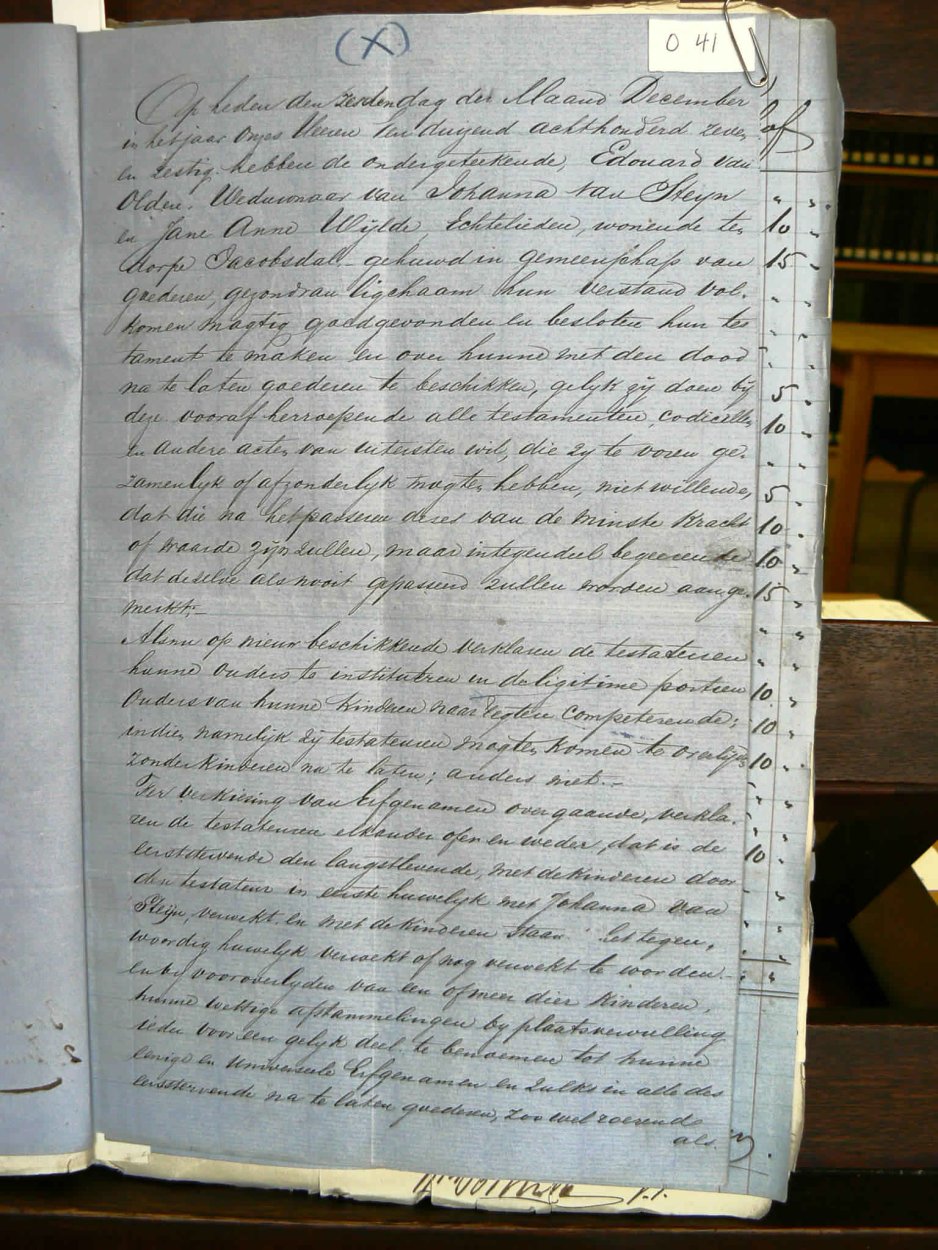 (X)
O 41
Op heden den zesden dag der Maand December
in het jaar onzes Heeren Een duyzend achthonderd zeven
en zestig hebben de ondergeteekende, Edouard van
Olden. Weduwnaar van Johanna van Steyn
en Jane Anne Wijlde, Echtelieden, wonende ten
dorpe Jacobsdal – gehuwd in gemeenschap van
goederen, gezond van ligchaam hun verstand vol-
komen magtig goedgevonden en besloten hun tes
tament te maken en over hunne met den dood
na te laten goederen te beschikken, gelyk zij doen bij
deze vooraf herroepende alle testamenten, codicillen
en andere acten van uitersten wil, die zy te voren ge-
zamenlyk of afzonderlyk mogten hebben, niet willende,
dat die na het passeren dezes van de minste kracht
of waarde zijn zullen, maar integendeel begeerende
dat deselve als nooit gepasseerd zullen worden aange-
merkt;–
Alsnu op nieuw beschikkende verklaren de testateuren
hunne ouders te institueren in de ligitime portien
Ouders van hunne kinderen naar regten competerende;
indien namelijk zij testateuren mogten komen te overlijden
zonder kinderen na te laten; anders niet.–
Ter verkiezing van Erfgenamen overgaande, verkla-
ren de testateuren elkander over en weder, dat is de
eerststervende den langstlevende, met de kinderen door
den testateur in eerste huwelyk met Johanna van
Steijn, verwekt en met de kinderen staande het tegen-
woordig huwelyk verwekt of nog verwekt te worden –
en bij vooroverlyden van een of meer dier kinderen,
hunne wettige afstammelingen by plaatsvervulling
ieder voor een gelyk deel te benoemen tot hunne
eenige en Universeele Erfgenamen en zulks in alle des
eerststervende na te laten goederen, zoo wel roerende
als
10
15
5
10
5
10
10
15
10
10
10
10